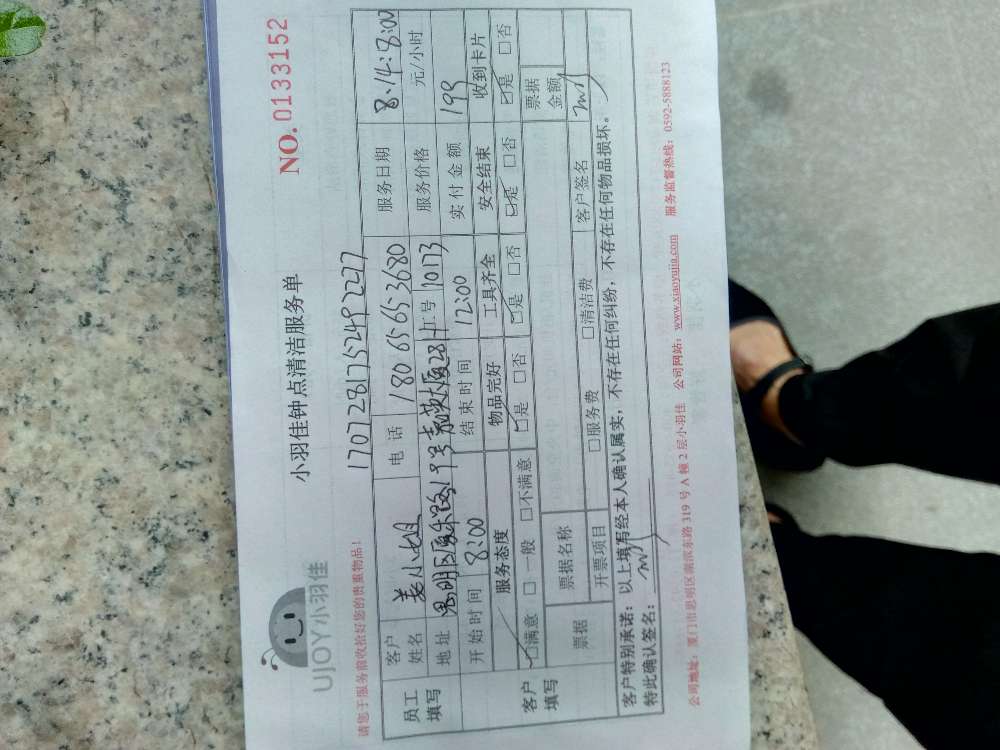 UJOY小羽佳
小羽佳钟点清洁服务单
NO. 0133152
请您于服务前收拾好您的贵重物品!
1707281752492227
员工填写
客户姓名 姜小姐 电话 18065653680 服务日期 8.14.8:00
地址 思明区 19号 大厦28 工号 1013 服务价格 元/小时
开始时间 8:00 结束时间 12:00 实付金额 199
客户填写
服务态度 物品完好 工具齐全 安全结束 收到卡片
☑满意 □一般 □不满意 ☑是 □否 ☑是 □否 ☑是 □否 ☑是 □否
票据 票据名称 票据金额
开票项目 □服务费 □清洁费 客户签名
客户特别承诺:以上填写经本人确认属实,不存在任何纠纷,不存在任何物品损坏。
特此确认签名:
公司地址:厦门市思明区南滨东路319号A幢2层小羽佳 公司网站:www.xiaoyujia.com 服务监督热线:0592-5888123